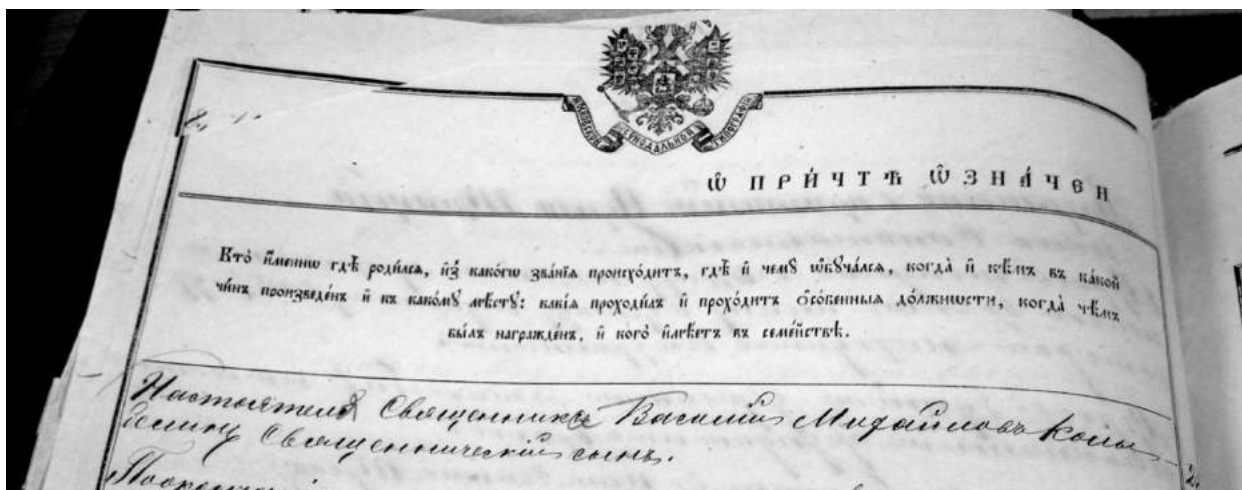 МОСКОВСКОЙ СѴНОДАЛЬНОЙ ТИПОГРАФІИ
Ѡ҆ ПРИ́ЧТѢ Ѡ҆ЗНА́ЧЕН
Кто̀ и҆́меннѡ гдѣ̀ роди́лсѧ, и҆з̾ како́гѡ зва́нїѧ происхо́дитъ, гдѣ̀ и҆ чемꙋ̀ ѡ҆бꙋча́лсѧ, когда̀ и҆ кѣ́мъ въ како́й
чи́нъ произведе́нъ и҆ къ како́мꙋ мѣ́стꙋ: какі́ѧ проходи́лъ и҆ прохо́дитъ ѻ҆со́бенныѧ до́лжнѡсти, когда̀ чѣ́мъ
бы́лъ награжде́нъ, и҆ кого̀ и҆мѣ́етъ въ семе́йствѣ.
Настоятель Священникъ Василій Михайловъ
Священническій сынъ.